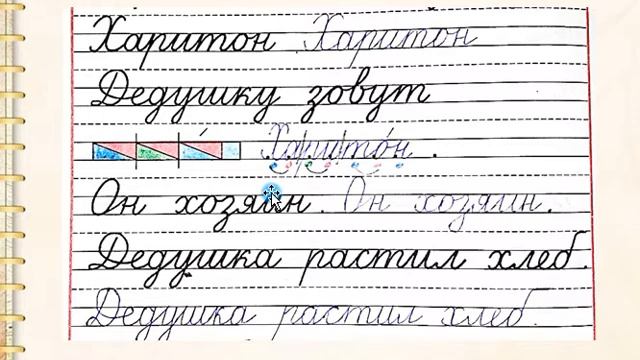 Харитон Харитон
Дедушку зовут
Харито́н.
Он хозяин. Он хозяин.
Дедушка растил хлеб.
Дедушка растил хлеб.